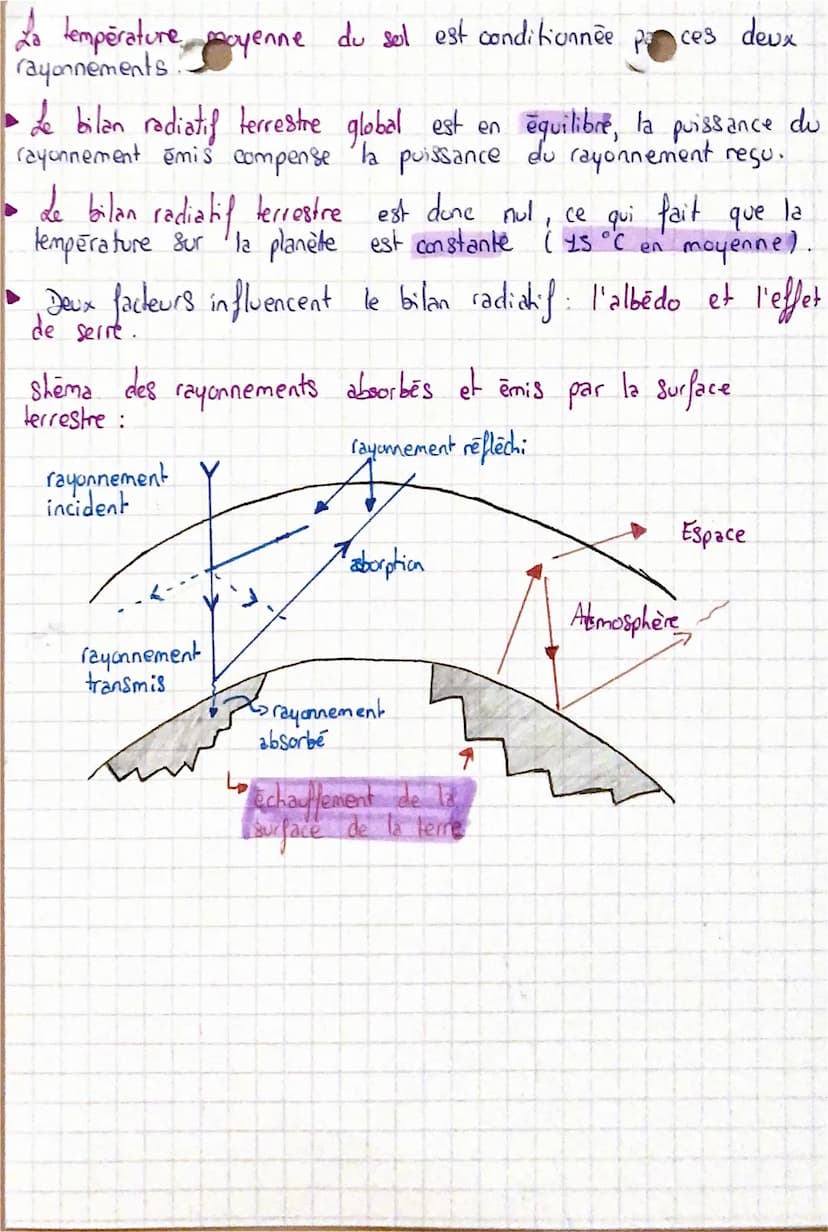 La température moyenne du sol est conditionnée par ces deux
rayonnements.
Le bilan radiatif terrestre global est en équilibré, la puissance du
rayonnement émis compense la puissance du rayonnement reçu.
Le bilan radiatif terrestre est donc nul, ce qui fait que la
température sur la planète est constante (15 °C en moyenne).
Deux facteurs influencent le bilan radiatif : l'albédo et l'effet
de serre.
Shéma des rayonnements absorbés et émis par la surface
terrestre :
rayonnement réfléchi
rayonnement
incident
Espace
aborption
Atmosphère
rayonnement
transmis
rayonnement
absorbé
échauffement de la
surface de la terre